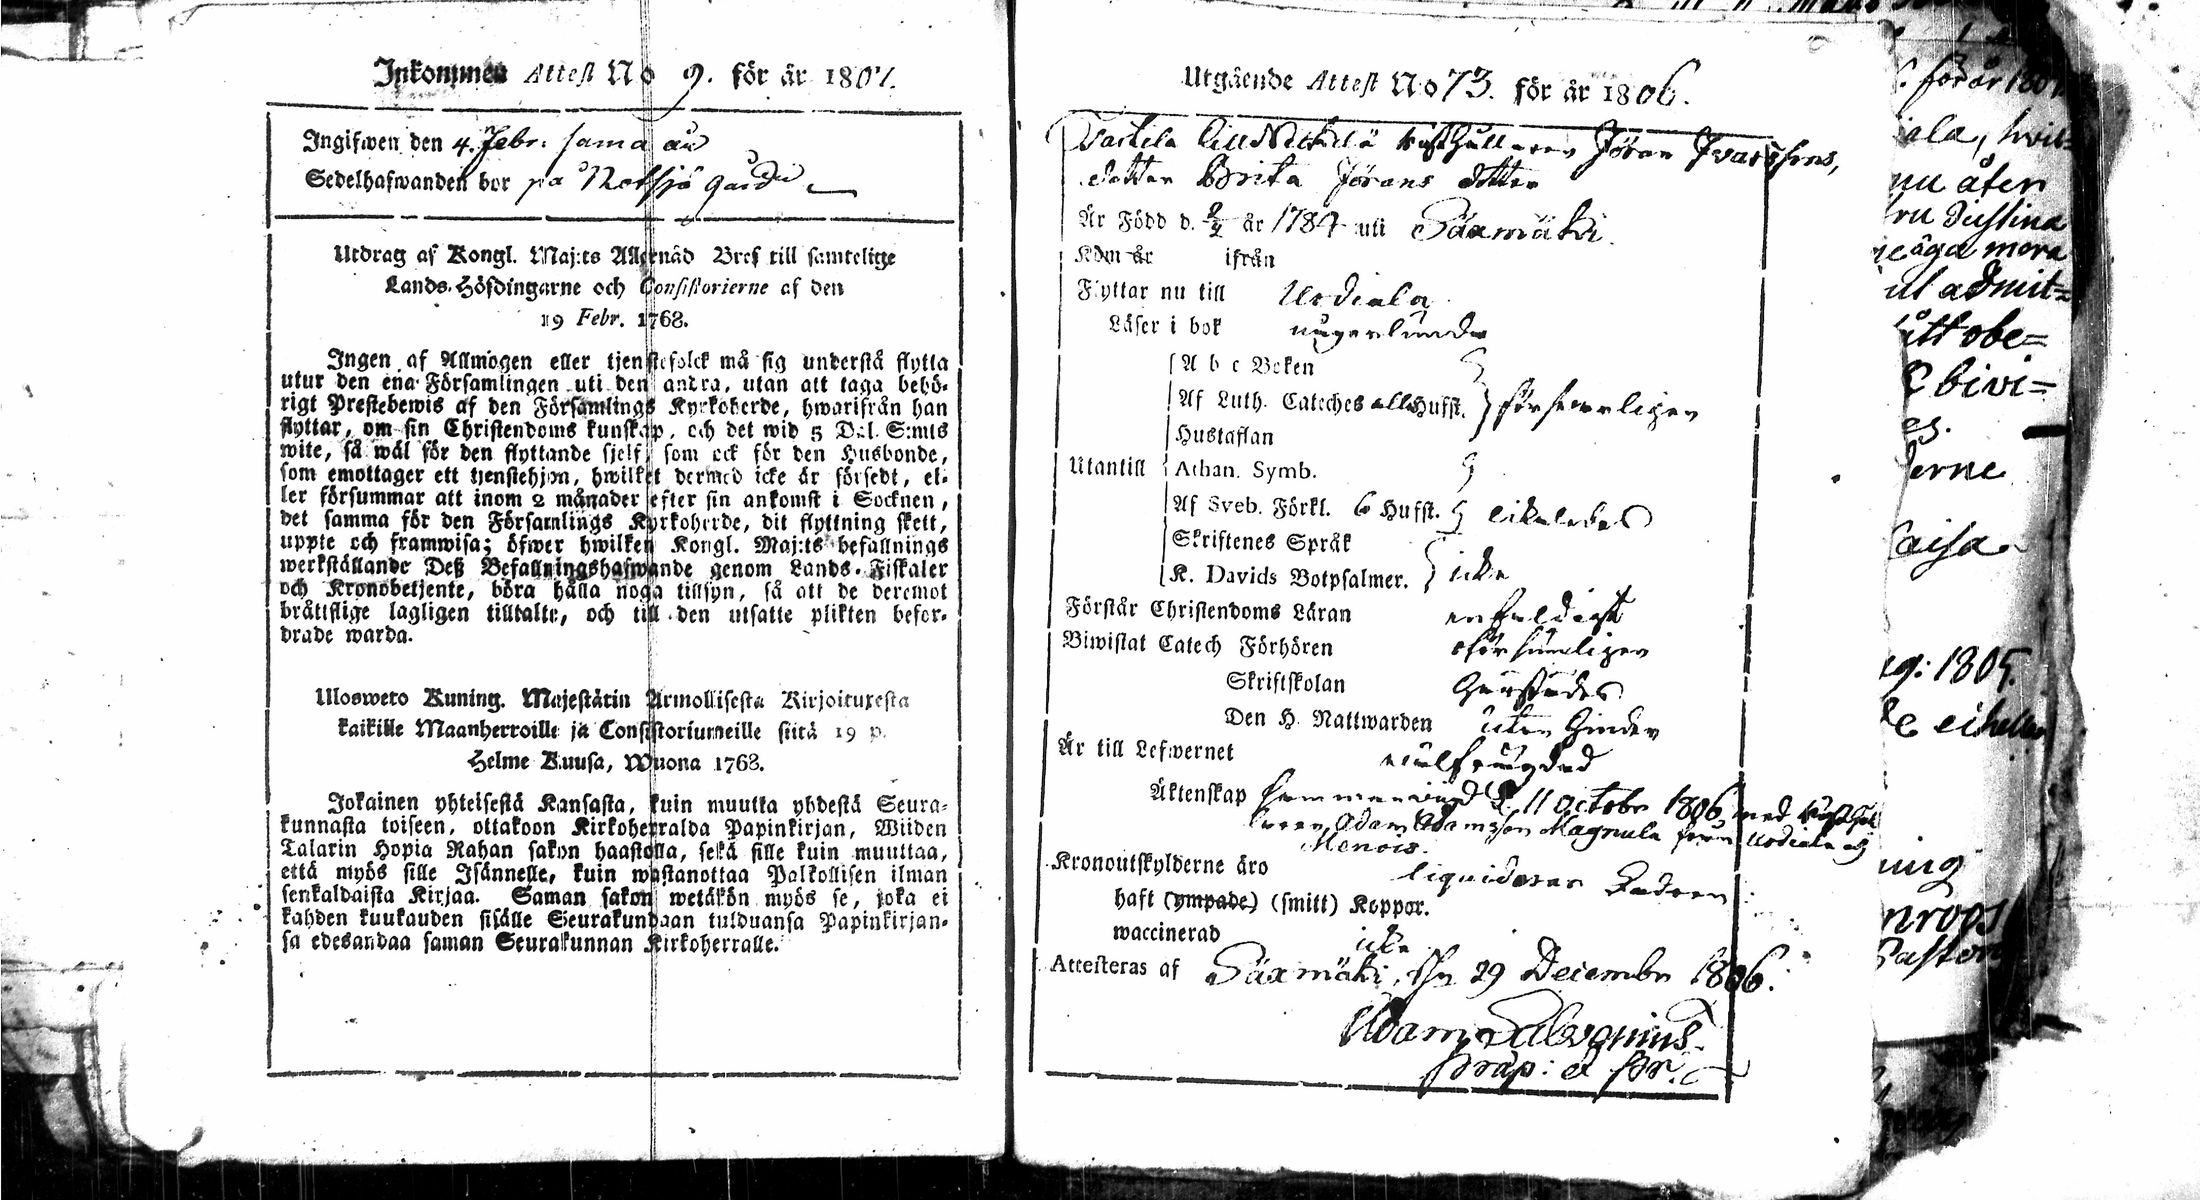 Inkommen Attest No 9. för år 1807.
Ingifwen den 4. Febr. sama år
Sedelhafwanden bor på gård
Utdrag af Kongl. Maj:ts Allernåd Bref till samtelige
Lands-Höfdingarne och Consistorierne af den
19 Febr. 1768.
Ingen af Allmogen eller tjenstefolck må sig understå flytta
utur den ena Församlingen uti den andra, utan att taga behö-
rigt Prestebewis af den Församlings Kyrkoherde, hwarifrån han
flyttar, om sin Christendoms kunskap, och det wid 5 Dal. S:mts
wite, så wäl för den flyttande sjelf, som ock för den Husbonde,
som emottager ett tjenstehjon, hwilket dermed icke är försedt, el-
ler försummar att inom 2 månader efter sin ankomst i Socknen,
det samma för den Församlings Kyrkoherde, dit flyttning skett,
uppte och framwisa; öfwer hwilken Kongl. Maj:ts befallnings
werkställande Deß Befallningshafwande genom Lands-Fiskaler
och Kronobetjente, böra hålla noga tillsyn, så att de deremot
bråttslige lagligen tilltalte, och till den utsatte plikten befor-
drade warda.
Ulosweto Kuning. Majestätin Armollisesta Kirjoituxesta
kaikille Maanherroille ja Consistoriumeille siitä 19 p.
Helme Kuusa, Wuona 1768.
Jokainen yhteisestä Kansasta, kuin muutta yhdestä Seura-
kunnasta toiseen, ottakoon Kirkoherralda Papinkirjan, Wiiden
Talarin Hopia Rahan sakon haastolla, sekä sille kuin muuttaa,
että myös sille Isännelle, kuin wastanottaa Palkollisen ilman
senkaldaista Kirjaa. Saman sakon wetäkön myös se, joka ei
kahden kuukauden sisälle Seurakundaan tulduansa Papinkirjan-
sa edesandaa saman Seurakunnan Kirkoherralle.
Utgående Attest No 73. för år 1806.
Jöran Ivarssons,
dotter Brita Jörans dotter
Är Född d. år 1784 uti Säxmäki.
Kom år ifrån
Flyttar nu till Urdiala
Läser i bok någorlunda
A b c Boken
Af Luth. Cateches alla Hufst. försvarligen
Hustaflan
Utantill Athan. Symb.
Af Sveb. Förkl. 6 Hufst. likaledes
Skriftenes Språk
K. Davids Botpsalmer. icke
Förstår Christendoms Läran enfaldigt
Biwistat Catech Förhören oförsumligen
Skriftskolan
Den H. Nattwarden utan hinder
Är till Lefwernet wälfrägdad
Äktenskap sammanvigd d. 11 octobr 1806, med
Adam Adamsson Magnula från Urdiala
Menois.
Kronoutskylderne äro liquiderar Fadren
haft (ympade) (smitt) Koppor.
waccinerad icke
Attesteras af Säxmäki, Thn 29 Decembr 1806.
Adam
præp: et